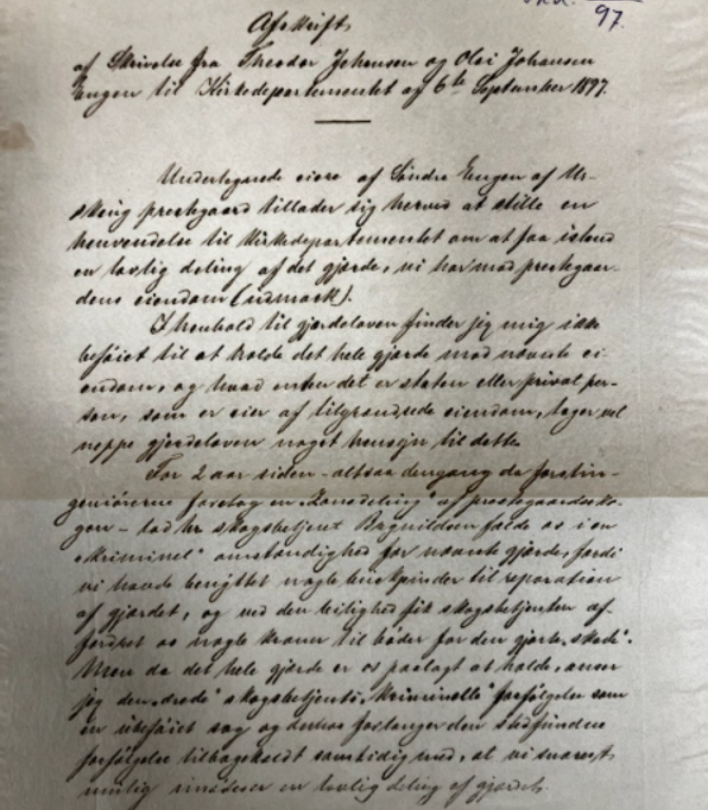 97.
Afskrift
af Skrivelse fra Theodor Johansen og Olai Johansen
Engen til Kirkedepartementet af 6te September 1897.
Undertegnede eiere af Søndre Engen af Ur-
skoug prestegaard tillader sig herved at stille en
henvendelse til Kirkedepartementet om at faa istand
en lovlig deling af det gjærde, vi har mod prestegaar-
dens eiendom (udmark).
I henhold til gjærdeloven finder jeg mig ikke
beføiet til at holde det hele gjærde mod nævnte ei-
endom, og hvad enten det er staten eller privat per-
son, som er eier af tilgrændsede eiendom, tager vel
neppe gjerdeloven noget hensyn til dette.
For 2 aar siden - altsaa dengang da forstin-
geniørerne foretog en "Zonedeling" af prestegaardssko-
gen - lod hr skogbetjent Bagnildsen falde os i en
"kriminel" omstændighed for nævnte gjærde, fordi
vi havde benyttet nogle til reparation
af gjærdet, og ved den leilighed fik skogsbetjenten af-
fordret os nogle kroner til bøder for den gjorte "skade".
Men da det hele gjærde er os paalagt at holde, anser
jeg den skogsbetjents "kriminelle" forfølgelse som
en ubeføiet sag og derhos forlanger den stedfundne
forfølgelse tilbagekaldt samtidig med, at vi snarest
mulig en lovlig deling af gjærdet.